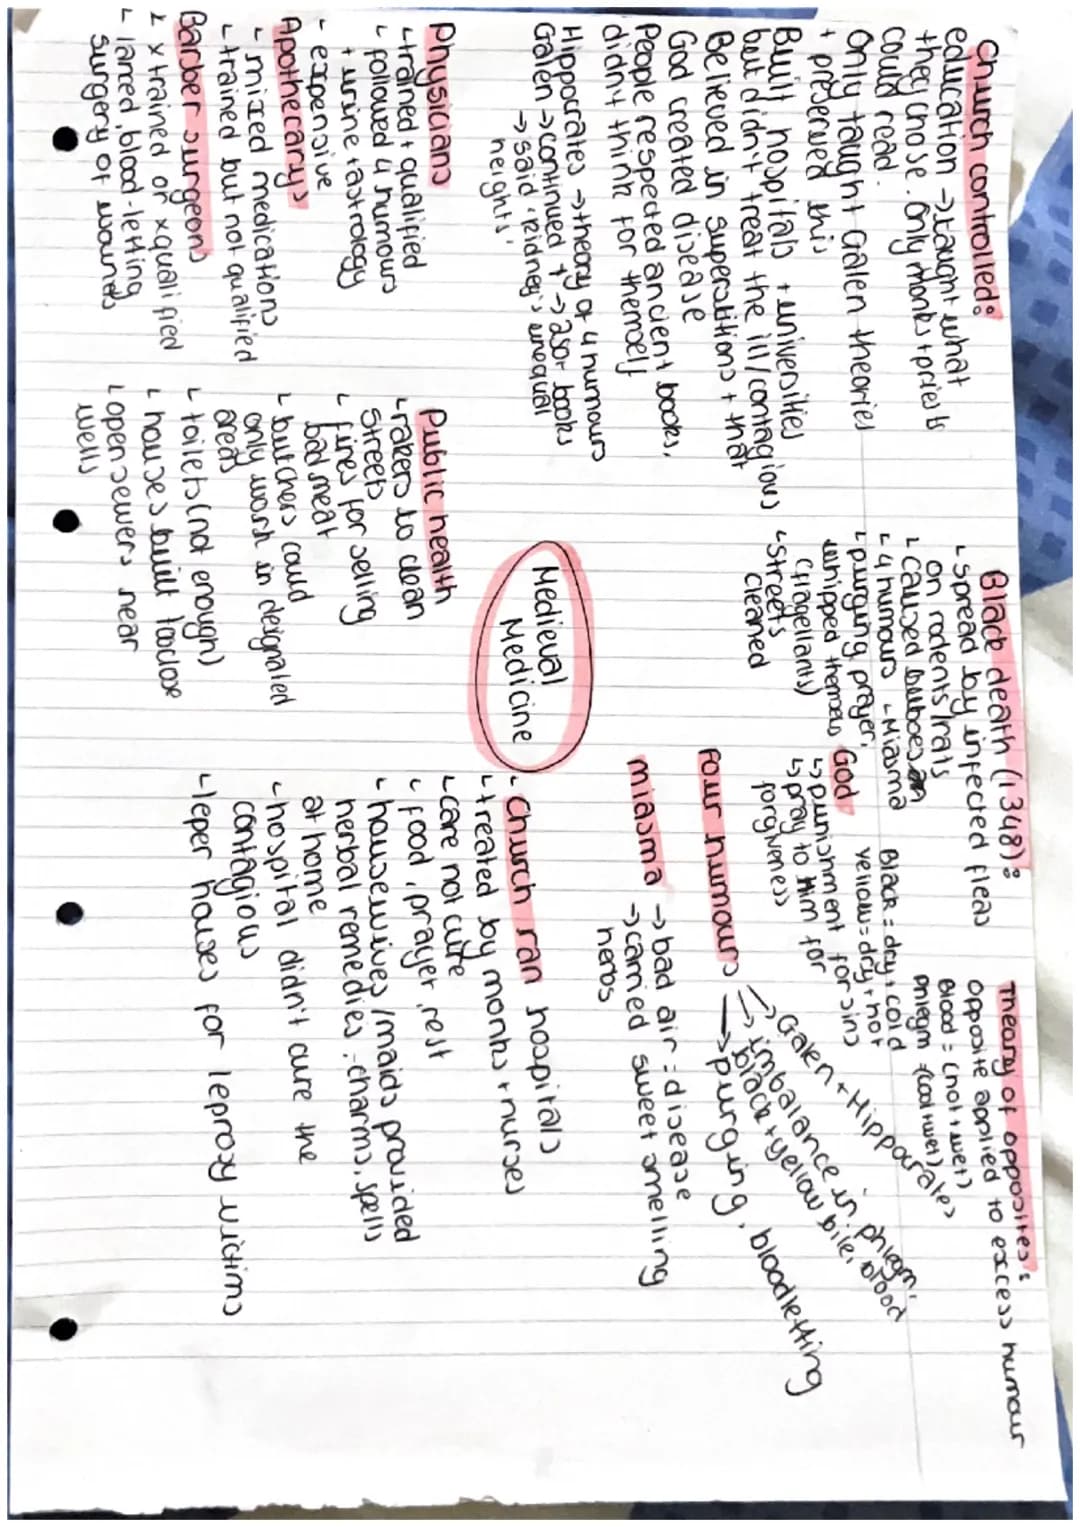 Church controlled:
education → taught what
they chose. Only monks + priests
could read.
Only taught Galen theories
+ preserved this
Built hospitals + universities
but didn't treat the ill/contagious
Believed in superstitions + that
God created disease
People respected ancient books,
didn't think for themself
Hippocrates → theory of 4 humours
Galen → continued ↑ → 350+ books
→ said 'kidney's unequal
heights'
Black death (1348):
spread by infected fleas
on rodents/rats
caused buboes
4 humours - Miasma
purging, prayer,
whipped themselves
(flagellants)
streets
cleaned
Theory of opposites:
opposite applied to excess humour
Blood = (hot + wet)
phlegm (cool + wet)
Black = dry + cold
yellow = dry + hot
God
↳ punishment for sins
↳ pray to Him for
forgiveness
Four humours
→ Galen + Hippocrates
→ imbalance in: phlegm,
black + yellow bile, blood
→ purging, bloodletting
miasma → bad air = disease
→ carried sweet smelling
herbs
Medieval
Medicine
Physicians
trained + qualified
followed 4 humours
+ urine + astrology
- expensive
Apothecarys
- mixed medications
trained but not qualified
Barber surgeons
x trained or x qualified
blood-letting
surgery of wounds
Public health
rakers to clean
streets
fines for selling
bad meat
butchers could
only wash in designated
areas
toilets (not enough)
houses built too close
open sewers near
wells
- Church ran hospitals
treated by monks + nurses
care not cure
food, prayer, rest
housewives/maids provided
herbal remedies, charms, spells
at home
hospital didn't cure the
contagious
leper houses for leprosy victims